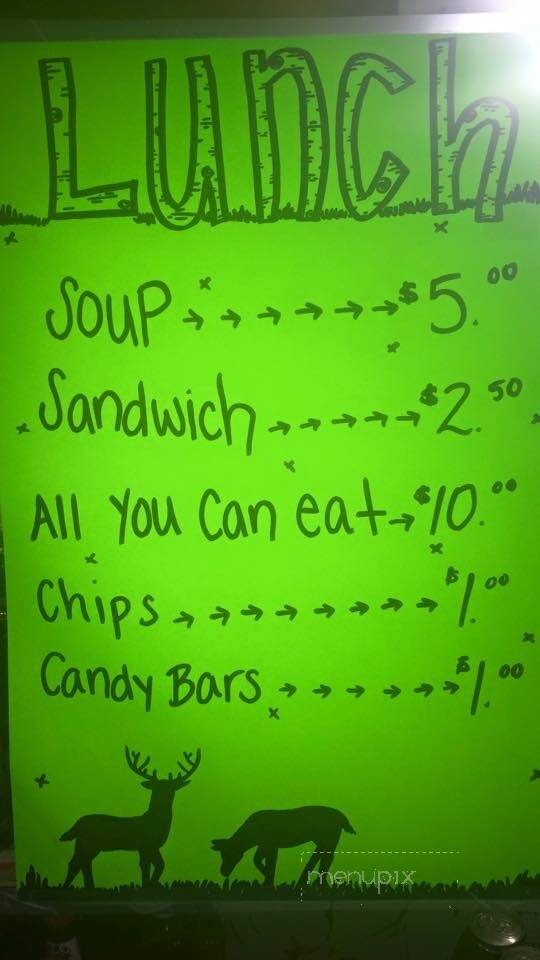 Lunch
Soup →→→→→→ $5.00
Sandwich →→→→→ $2.50
All You Can eat → $10.00
Chips →→→→→→→ $1.00
Candy Bars →→→→→→ $1.00
menupix